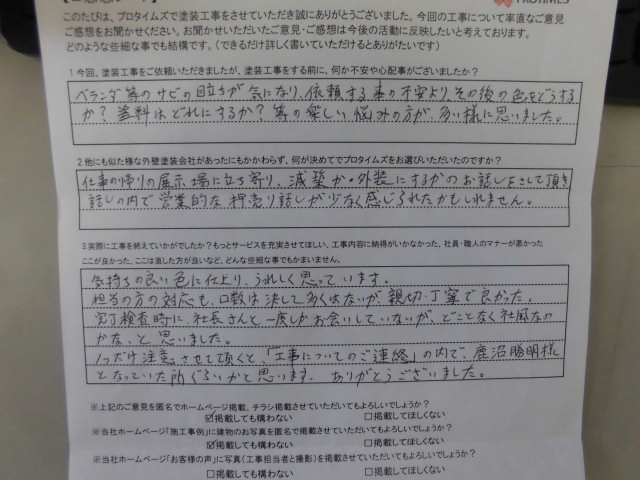 PROTIMES
このたびは、プロタイムズで塗装工事をさせていただき誠にありがとうございました。今回の工事について率直なご意見
ご感想をお聞かせください。お聞かせいただいたご意見・ご感想は今後の活動に反映したいと考えております。
どのような些細な事でも結構です。(できるだけ詳しく書いていただけるとありがたいです)
1.今回、塗装工事をご依頼いただきましたが、塗装工事をする前に、何か不安や心配事がございましたか?
ベランダ等のサビの目立ちが気になり、依頼する事の不安より、その後の色をどうする
か?塗料はどれにするか?等の楽しい悩みの方が、多い様に思いました。
2.他にも似た様な外壁塗装会社があったにもかかわらず、何が決めてでプロタイムズをお選びいただいたのですか?
仕事の帰りの展示場に立ち寄り、減築か・外装にするかのお話しをさせて頂き
話しの内で営業的な押売り話しが少なく感じられたかもしれません。
3.実際に工事を終えていかがでしたか?もっとサービを充実させてほしい、工事内容に納得がいかなかった、社員・職人のマナーが悪かった
ここが良かった、ここは直した方が良いなど、どんな些細な事でもかまいません。
気持ちの良い色に仕上り、うれしく思っています。
担当の方の対応も、口数は決して多くはないが、親切・丁寧で良かった。
完了検査時に、社長さんと一度しかお会いしていないが、どことなく社風なの
かな、と思いました。
1つだけ注意させて頂くと、「工事についてのご連絡」の内で、鹿沼勝明様
となっていた所ぐらいかと思います。ありがとうございました。
※上記のご意見を匿名でホームページ掲載、チラシ掲載させていただいてもよろしいでしょうか?
☑掲載しても構わない □掲載してほしくない
※当社ホームページ「施工事例」に建物のお写真を匿名で掲載させていただいてもよろしいでしょうか?
☑掲載しても構わない □掲載してほしくない
※当社ホームページ「お客様の声」に写真(工事担当者と撮影)を掲載させていただいてもよろしいでしょうか?
□掲載しても構わない □掲載してほしくない